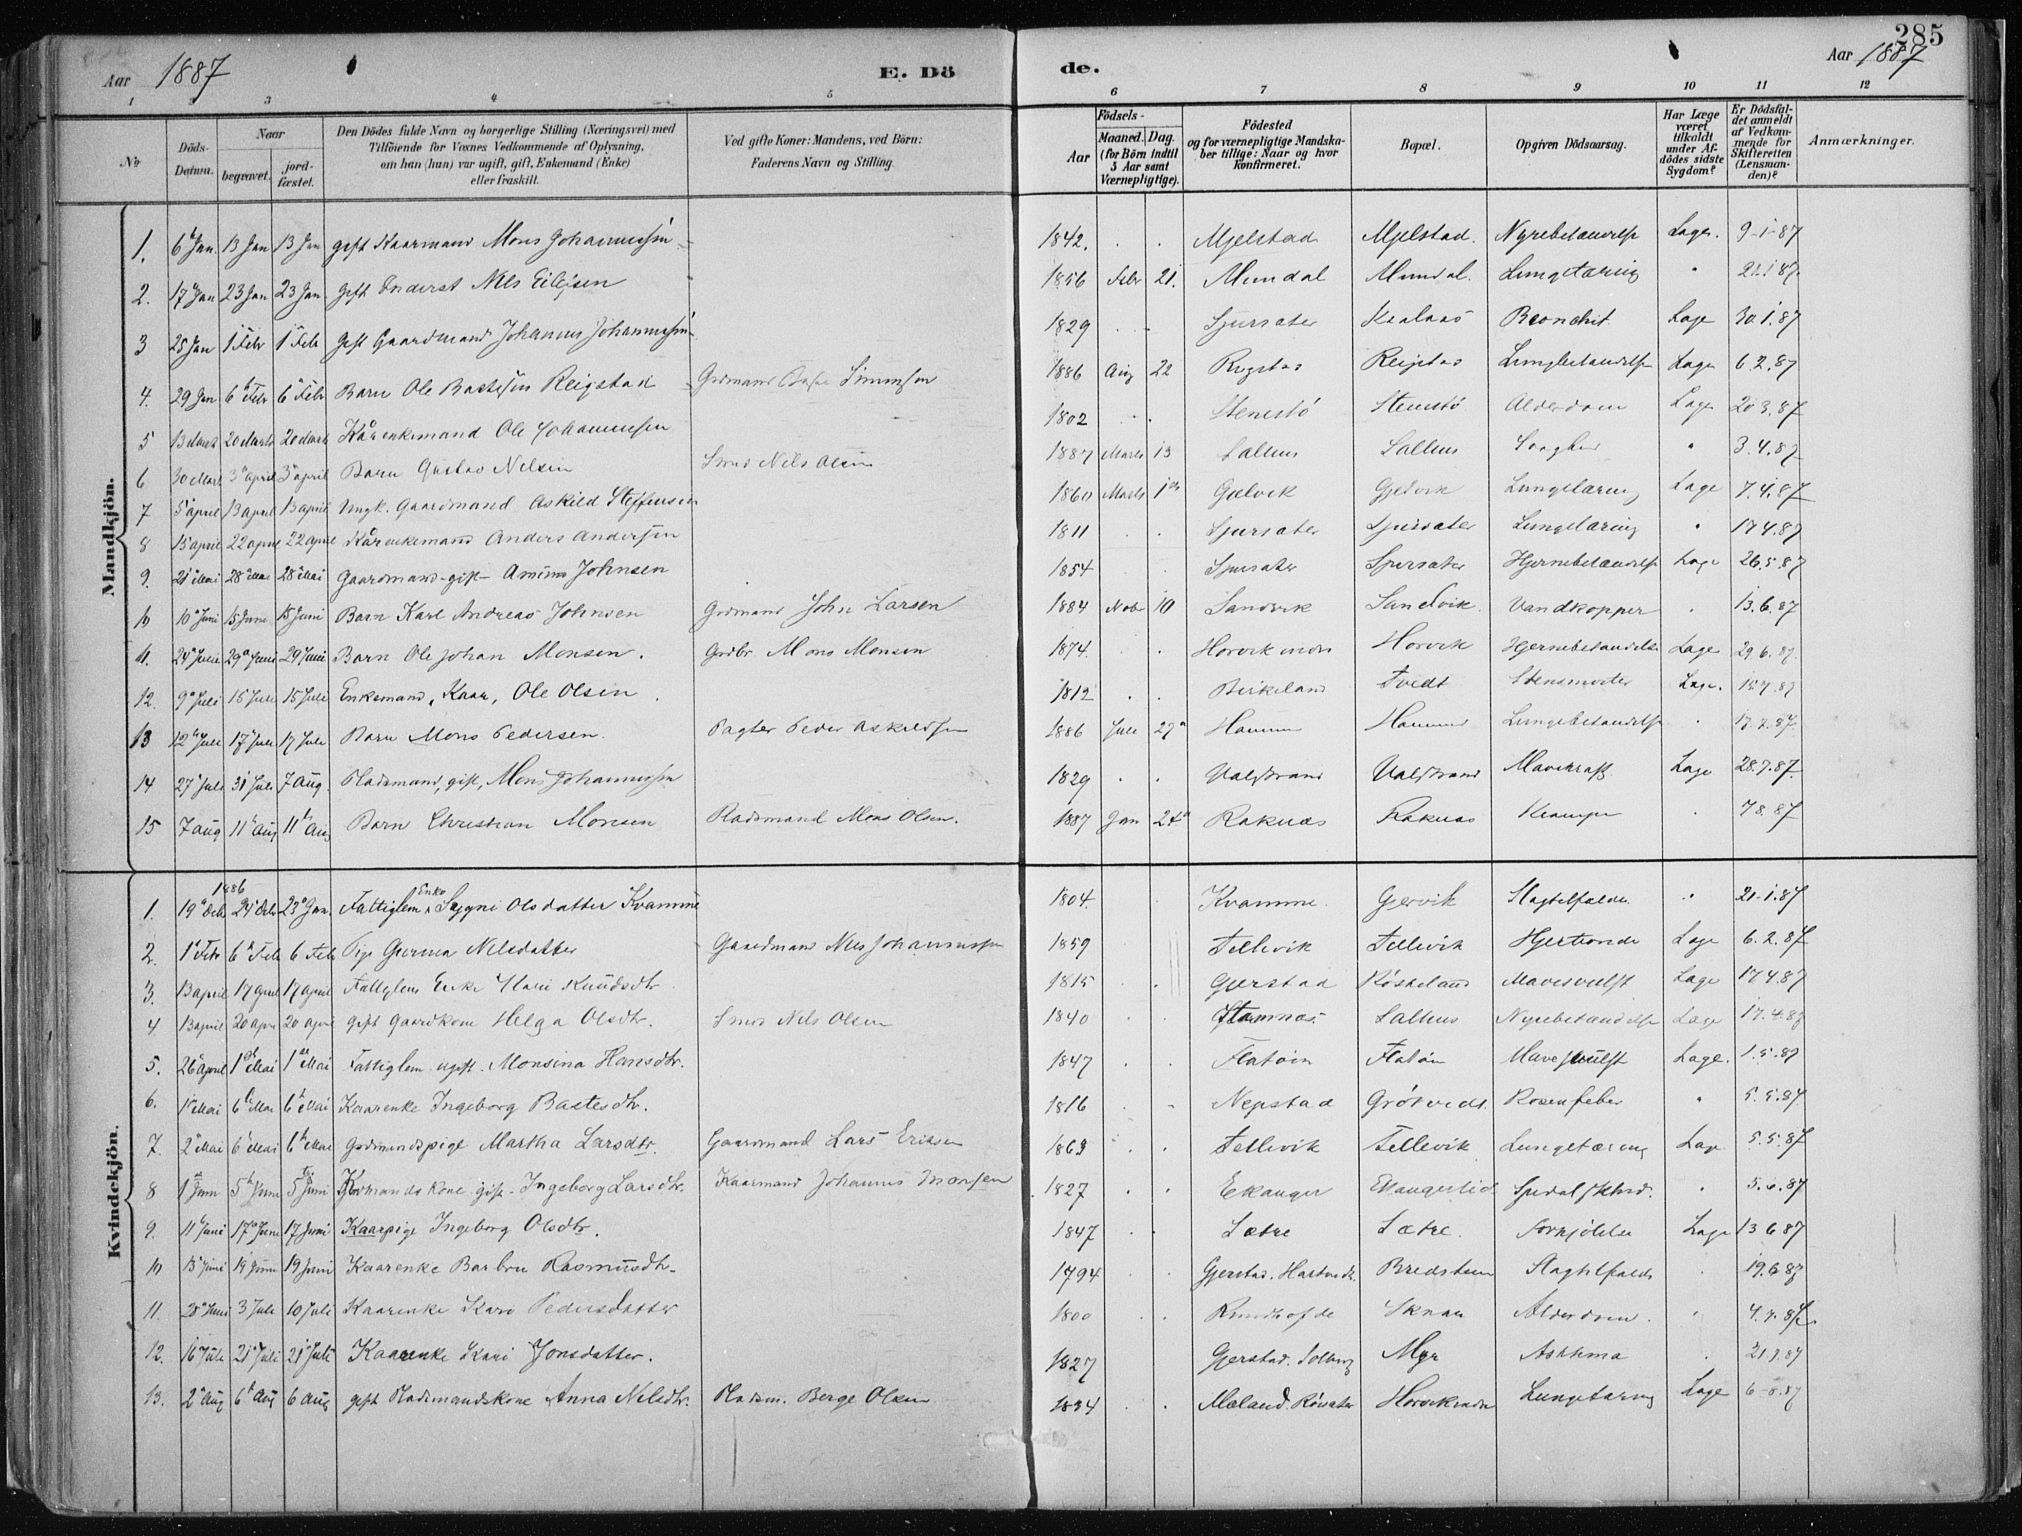 285
Aar 1887
E. Dö
de.
Aar 1887
1 2 3 4 5 6 7 8 9 10 11 12
No
Döds-Datum.
Naar
begravet.
jord-fæstet.
Den Dödes fulde Navn og borgerlige Stilling (Næringsvei) med
Tilföiende for Voxnes Vedkommende af Oplysning,
om han (hun) var ugift, gift, Enkemand (Enke)
eller fraskilt.
Ved gifte Koner: Mandens, ved Börn:
Faderens Navn og Stilling.
Födsels-
Aar
Maaned. Dag.
(for Börn indtil
5 Aar samt
Værnepligtige).
Födested
og for værnepligtige Mandska-
ber tillige: Naar og hvor
konfirmeret.
Bopæl.
Opgiven Dödsaarsag.
Har Læge
været
tilkaldt
under Af-
dödes sidste
Sygdom?
Er Dödsfal-
det anmeldt
af Vedkom-
mende for
Skifteretten
(Lensman-
den)?
Anmærkninger.
Mandkjön.
1. 6 Jan 13 Jan 13 Jan gift Kaarmand Mons Johannessen 1842. Mjelstad Mjelstad. Nyrebetændelse Læge. 9-1-87
2. 17 Jan 23 Jan 23 Jan gift Inderst Nils Eilefsen 1856 Febr 21. Mundal Mundal. Lungetæring " 21.1.87
3 25 Jan 1 Febr 1 Febr gift Gaardmand Johannes Johannessen 1829 Sjursæter Bronchit Læge 30.1.87
4. 29 Jan 6 Febr 6 Febr Barn Ole Bastesen Reigstad Grdmand Baste Simonsen 1886 Aug 22 Reigstad Reigstad Lungebetændelse Læge 6.2.87
5 13 Marts 20 Marts 20 Marts Kårenkemand Ole Johannessen 1802 Stenestö Stenestö Alderdom Læge 20.3.87
6 30 Mart 3 april 3 april Barn Gustav Nelsen Smed Nils Olsen 1887 Marts 13 Salhus Salhus " 3.4.87
7 5 april 13 april 13 april Ungk. Gaardmand Askild Steffensen 1860 Marts 1 Gjelvik Gjelvik Lungetæring Læge 7.4.87
8 15 april 22 april 22 april Kårenkemand Anders Andersen 1811 Sjursæter Sjursæter Lungetæring " 17.4.87
9. 21 Mai 28 Mai 28 Mai Gaardmand gift Johnsen 1854 Sjursæter Sjursæter Hjernebetændelse Læge 26.5.87
10 10 Juni 15 Juni 15 Juni Barn Karl Andreas Johnsen Grdmand John Larsen 1884 Nob 10 Sandvik Sandvik. Vandkopper 13.6.87
11. 24 Juni 29 Juni 29 Juni Barn Ole Johan Monsen. Grdbr Mons Monsen 1874. Horvik Horvik Hjernebetændelse Læge 29.6.87.
12. 9 Juli 15 Juli 15 Juli Enkemand, Kaar, Ole Olsen 1812 Birkeland Tvedt Læge. 15.7.87
13 12 Juli 17 Juli 17 Juli Barn Mons Pedersen. Pagter Peder Askildsen 1886 Juli 27 Hammer Hammer Lungebetændelse 17.7.87.
14 27 Juli 31 Juli 7 Aug. Pladsmand, gift, Mons Johannessen 1829 Valestrand Valestrand Mavekræft Læge 28.7.87.
15 7 aug 11 Aug 11 Aug Barn Christian Monsen Pladsmand Mons Olsen. 1887 Jan 24 Raknæs Raknæs Krampe 7.8.87
Kvindekjön.
1886
1. 19 Dcb 24 Dcb 23 Jan. Fattiglem Enke Sygni Olsdatter Kvamme 1804. Kvamme. Gjervik Slagtilfælde " 21-1.87
2. 1 Febr 6 Feb 6 Feb Pige Gurina Nelsdatter Gaardmand Nils Johannessen 1859 Tellevik Tellevik Hjerteonde Læge 6.2.87
3. 13 april 17 april 17 april Fattiglem Enke Mari Knudsdtr 1815 Gjerstad Röskeland Mavesvulst Læge 17.4.87
4 13 april 20 april 20 april gift Gaardkone Helga Olsdtr. Smed Nils Olsen 1840 Stamnæs. Salhus Nyrebetændelse Læge 17.4.87
5. 26 april 1 Mai 1 Mai Fattiglem ugift. Monsina Hansdtr. 1847 Flatöen Flatöen Mavesvulst Læge. 1.5.87
6. 1 Mai 6 Mai 6 Mai Kaarenke Ingeborg Bastesdtr. 1816 Nepstad Grötvedt. Rosenfeber " 5.5.87
7. 2 Mai 6 Mai 6 Mai Grdmandspige Martha Larsdtr. Gaardmand Lars Eriksen 1863 Tellevik Tellevik Lungetæring Læge 5.5.87
8 1 Juni 5 Juni 5 Juni Kaarmands kone gift Ingeborg Larsdtr. Kaarmand Johannes Monsen 1827 Ekanger " 5.6.87
9. 11 Juni 17 Juni 17 Juni Kaarpige Ingeborg Olsdtr. 1847 Sætre Sætre. Forkjölelse Læge 13.6.87
10 13 Juni 19 Juni 19 Juni Kaarenke Barbru Rasmusdtr. 1794 Gjerstad. Bredsteen Slagtilfælde 19.6.87
11. 28 Juni 3 Juli 10 Juli Kaarenke Kari Pedersdatter 1800 Alderdom. 4.7.87.
12. 16 Juli 21 Juli 21 Juli Kaarenke Kari Jonsdatter. 1827 Gjerstad. Myr Asthma 21.7.87
13. 2 Aug 6 Aug 6 Aug gift Pladsmandskone Anna Nelsdtr. Pladsm. Berge Olsen 1834 Mæland. Lungetæring Læge 6-8.87